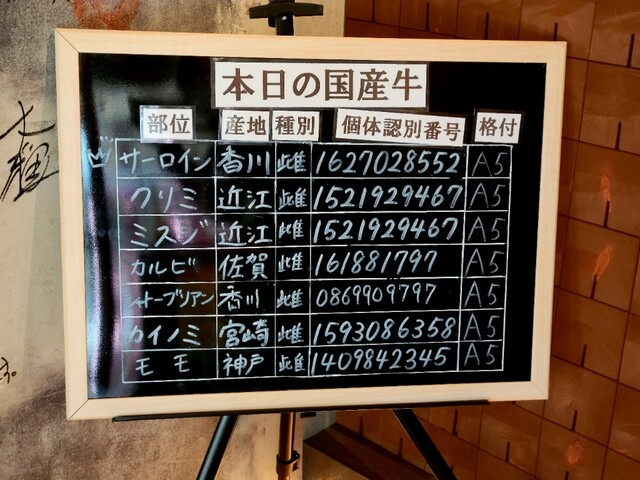 本日の国産牛
部位 産地 種別 個体認別番号 格付
サーロイン 香川 雌 1627028552 A5
クリミ 近江 雌 1521929467 A5
ミスジ 近江 雌 1521929467 A5
カルビ 佐賀 雌 161881797 A5
シャトーブリアン 香川 雌 0869909797 A5
カイノミ 宮崎 雌 1593086358 A5
モモ 神戸 雌 1409842345 A5